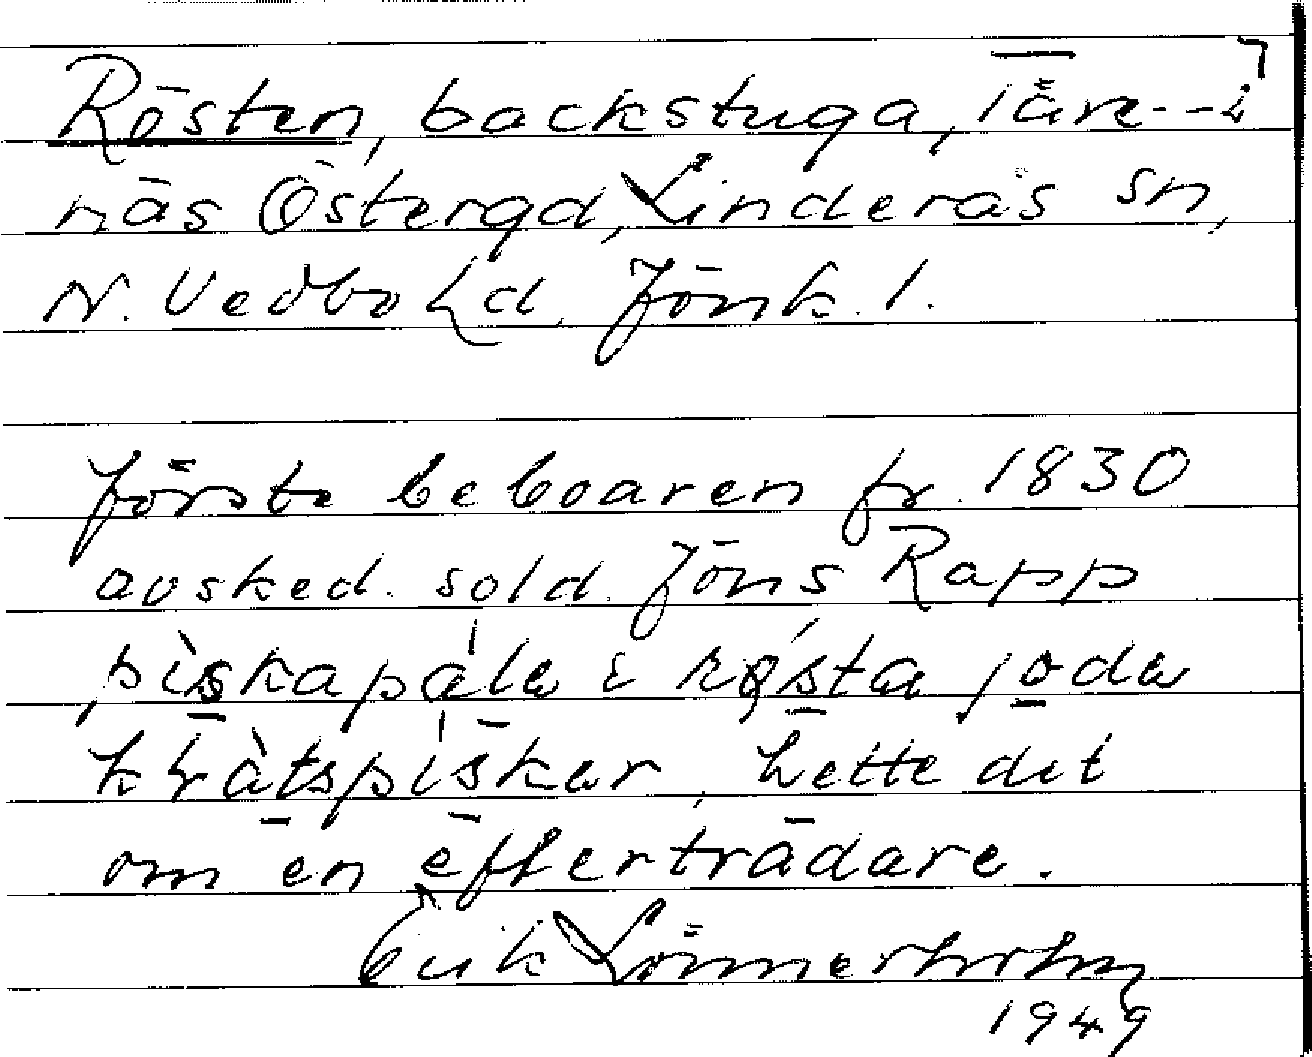 Rösten, backstuga, Täre-
näs Östergd, Linderås sn,
N. Vedbo hd, Jönk. l.
förste beboaren fr. 1830
avsked. sold. Jöns Rapp
piskapåla i røsta joda
kråtspiskar, hette det
om en efterträdare.
Erik Lönnerholm
1949